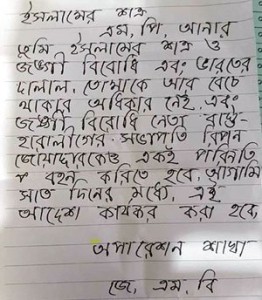 ইসলামের শত্রু
এম, পি, আনার
তুমি ইসলামের শত্রু ও
জঙ্গী বিরোধি এবং ভারতের
দালাল, তোমাকে আর বেচে
থাকার অধিকার নেই, এবং
জঙ্গী বিরোধি নেতা
সভাপতি
জোয়াদ্দারকেও একই পরিনতি
বহন করিতে হবে, আগামি
সাত দিনের মধ্যে, এই
আদেশ কার্যকর করা হবে,
অপারেশন শাখা
জে, এম, বি